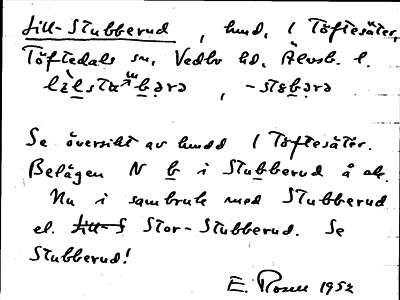 Lill-Stubberud, hmd, l Töftesäter,
Töftedals sn, Vedbo hd, Älvsb. l.
, -stobərə
Se översikt av hmdd l Töftesäter.
Belägen N b i Stubberud å ek.
Nu i sambruk med Stubberud
el. Stor-Stubberud. Se
Stubberud!
E. Rosell 1952